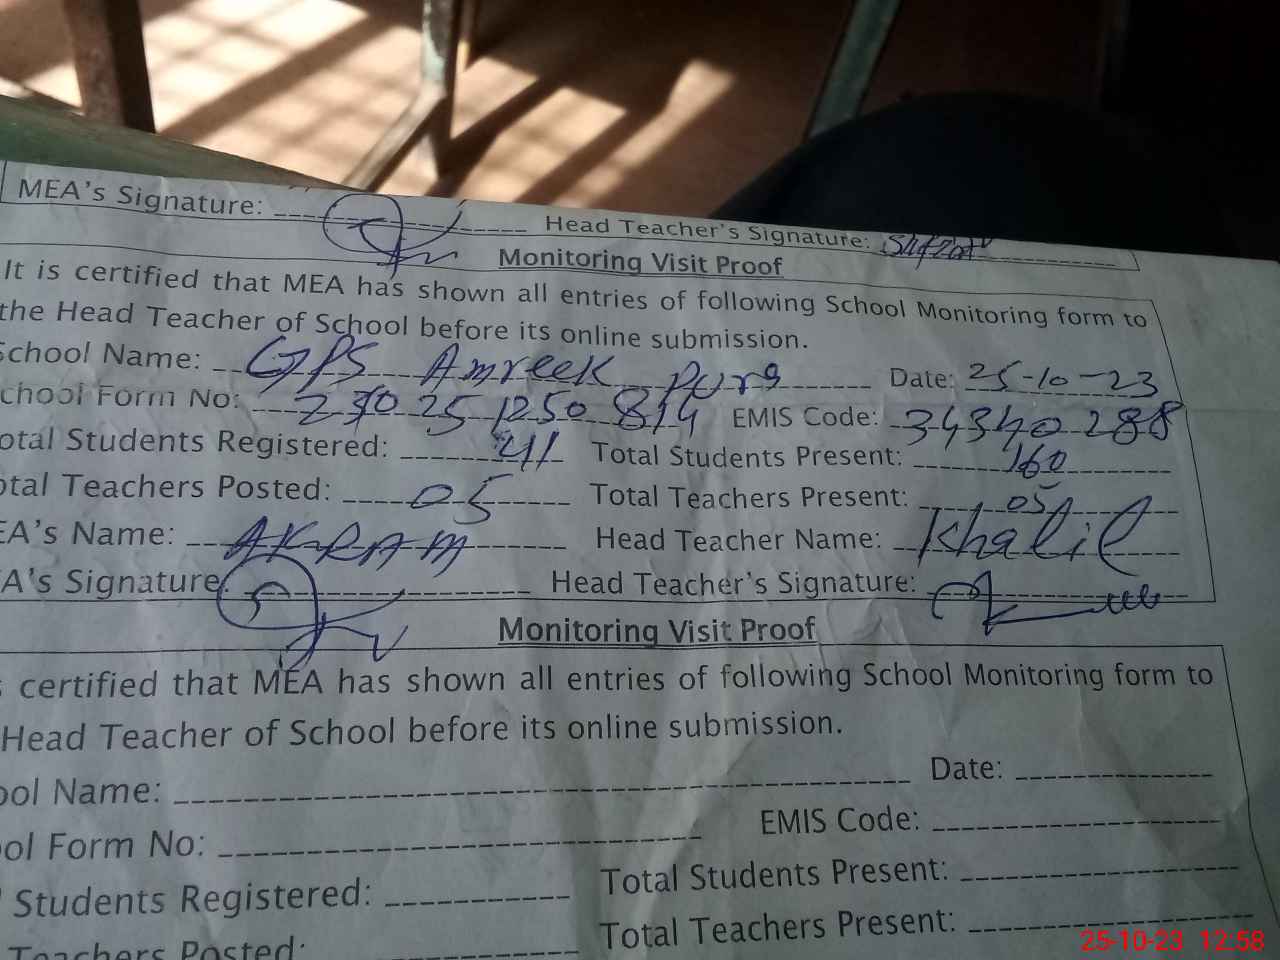 MEA's Signature: Head Teacher's Signature:
Monitoring Visit Proof
It is certified that MEA has shown all entries of following School Monitoring form to
the Head Teacher of School before its online submission.
School Name: GPS Amreek Pura Date: 25-10-23
chool Form No: 230 25 1250 814 EMIS Code: 34340288
otal Students Registered: Total Students Present: 160
otal Teachers Posted: 05 Total Teachers Present: 05
EA's Name: AKRAM Head Teacher Name: Khalil
A's Signature Head Teacher's Signature:
Monitoring Visit Proof
certified that MEA has shown all entries of following School Monitoring form to
Head Teacher of School before its online submission.
ool Name: Date:
ool Form No: EMIS Code:
Students Registered: Total Students Present:
Teachers Posted: Total Teachers Present:
25-10-23 12:58